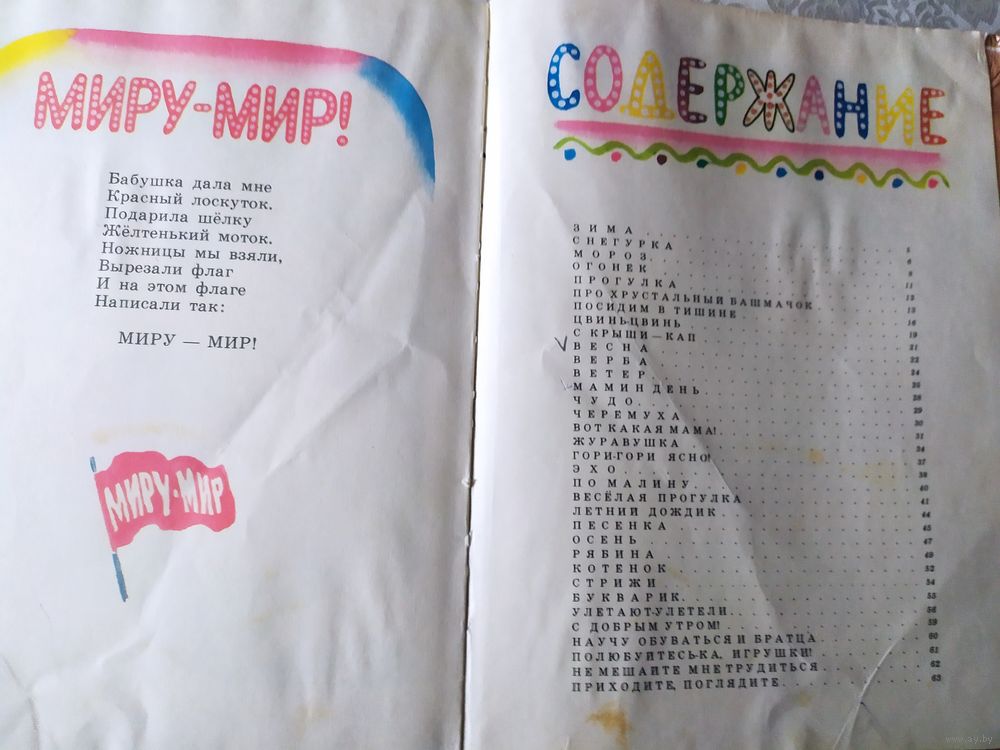 МИРУ-МИР!
Бабушка дала мне
Красный лоскуток.
Подарила шёлку
Жёлтенький моток.
Ножницы мы взяли,
Вырезали флаг
И на этом флаге
Написали так:
МИРУ — МИР!
МИРУ-МИР
СОДЕРЖАНИЕ
ЗИМА
СНЕГУРКА
МОРОЗ
ОГОНЕК
ПРОГУЛКА
ПРО ХРУСТАЛЬНЫЙ БАШМАЧОК
ПОСИДИМ В ТИШИНЕ
ЦВИНЬ-ЦВИНЬ
С КРЫШИ — КАП
ВЕСНА
ВЕРБА
ВЕТЕР
МАМИН ДЕНЬ
ЧУДО
ЧЕРЕМУХА
ВОТ КАКАЯ МАМА!
ЖУРАВУШКА
ГОРИ-ГОРИ ЯСНО!
ЭХО
ПО МАЛИНУ
ВЕСЁЛАЯ ПРОГУЛКА
ЛЕТНИЙ ДОЖДИК
ПЕСЕНКА
ОСЕНЬ
РЯБИНА
КОТЕНОК
СТРИЖИ
БУКВАРИК
УЛЕТАЮТ-УЛЕТЕЛИ
С ДОБРЫМ УТРОМ! 59
НАУЧУ ОБУВАТЬСЯ И БРАТЦА 60
ПОЛЮБУЙТЕСЬ-КА, ИГРУШКИ! 61
НЕ МЕШАЙТЕ МНЕ ТРУДИТЬСЯ 62
ПРИХОДИТЕ, ПОГЛЯДИТЕ 63
www.ay.by